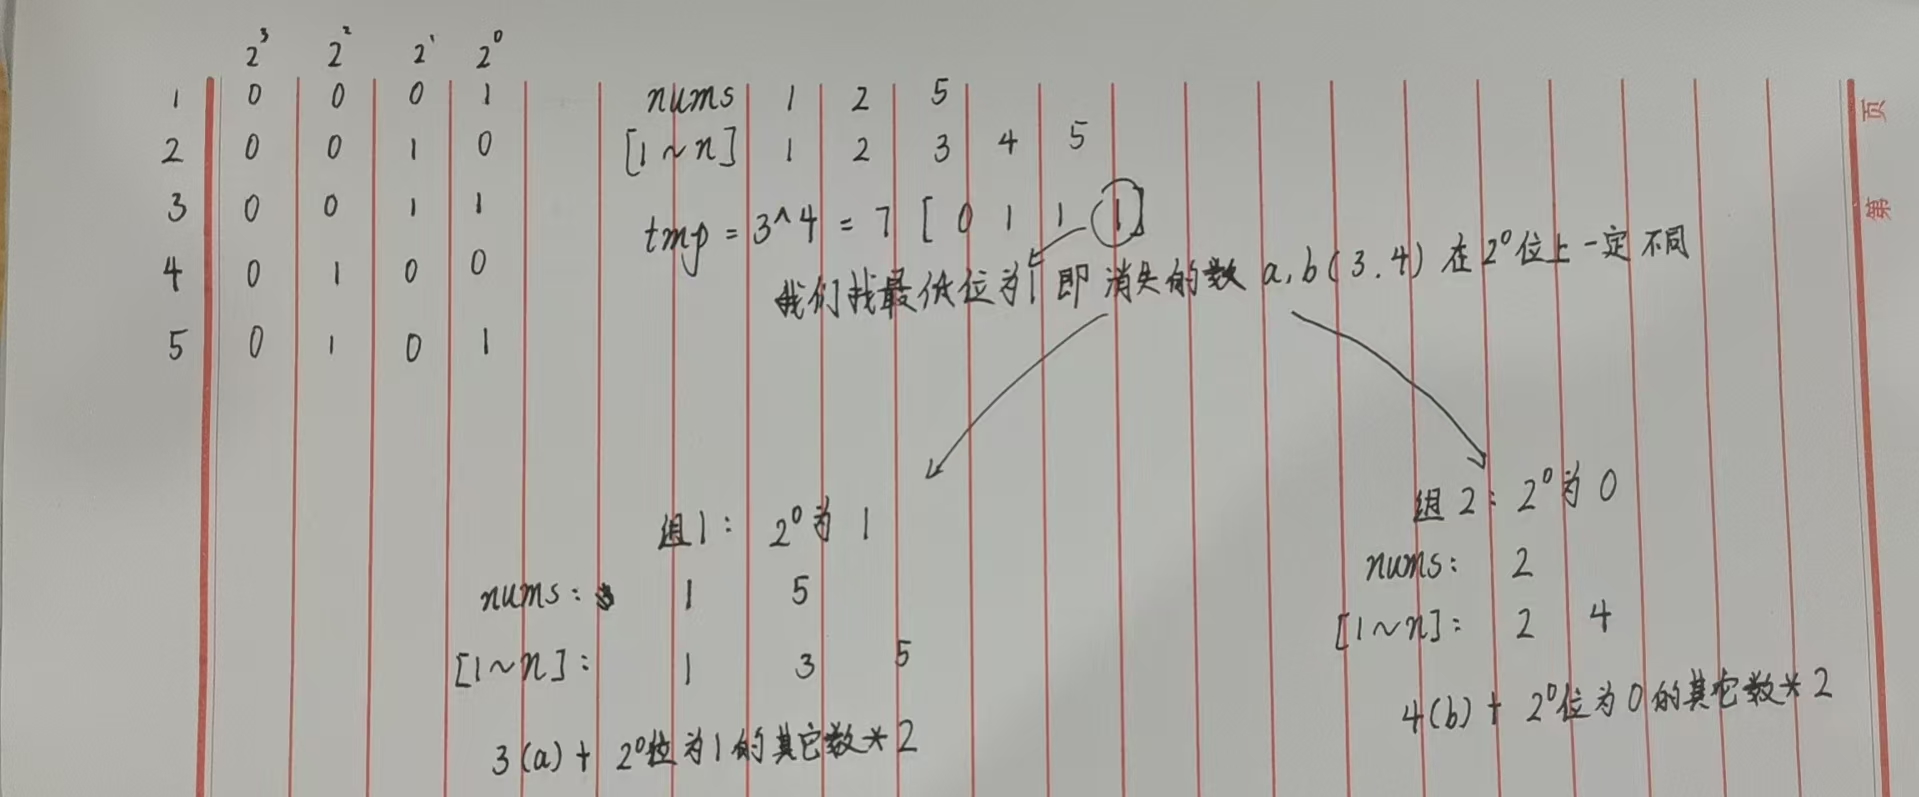 2³ 2² 2¹ 2⁰
1 0 0 0 1
2 0 0 1 0
3 0 0 1 1
4 0 1 0 0
5 0 1 0 1
nums 1 2 5
[1~n] 1 2 3 4 5
tmp = 3^4 = 7 [ 0 1 1 1 ]
我们找最低位为1 即 消失的数 a,b(3.4) 在 2⁰位上一定不同
组1: 2⁰为 1
nums: 1 5
[1~n]: 1 3 5
3(a) + 2⁰位为1的其它数*2
组2: 2⁰为 0
nums: 2
[1~n]: 2 4
4(b) + 2⁰位为0的其它数*2
页
第